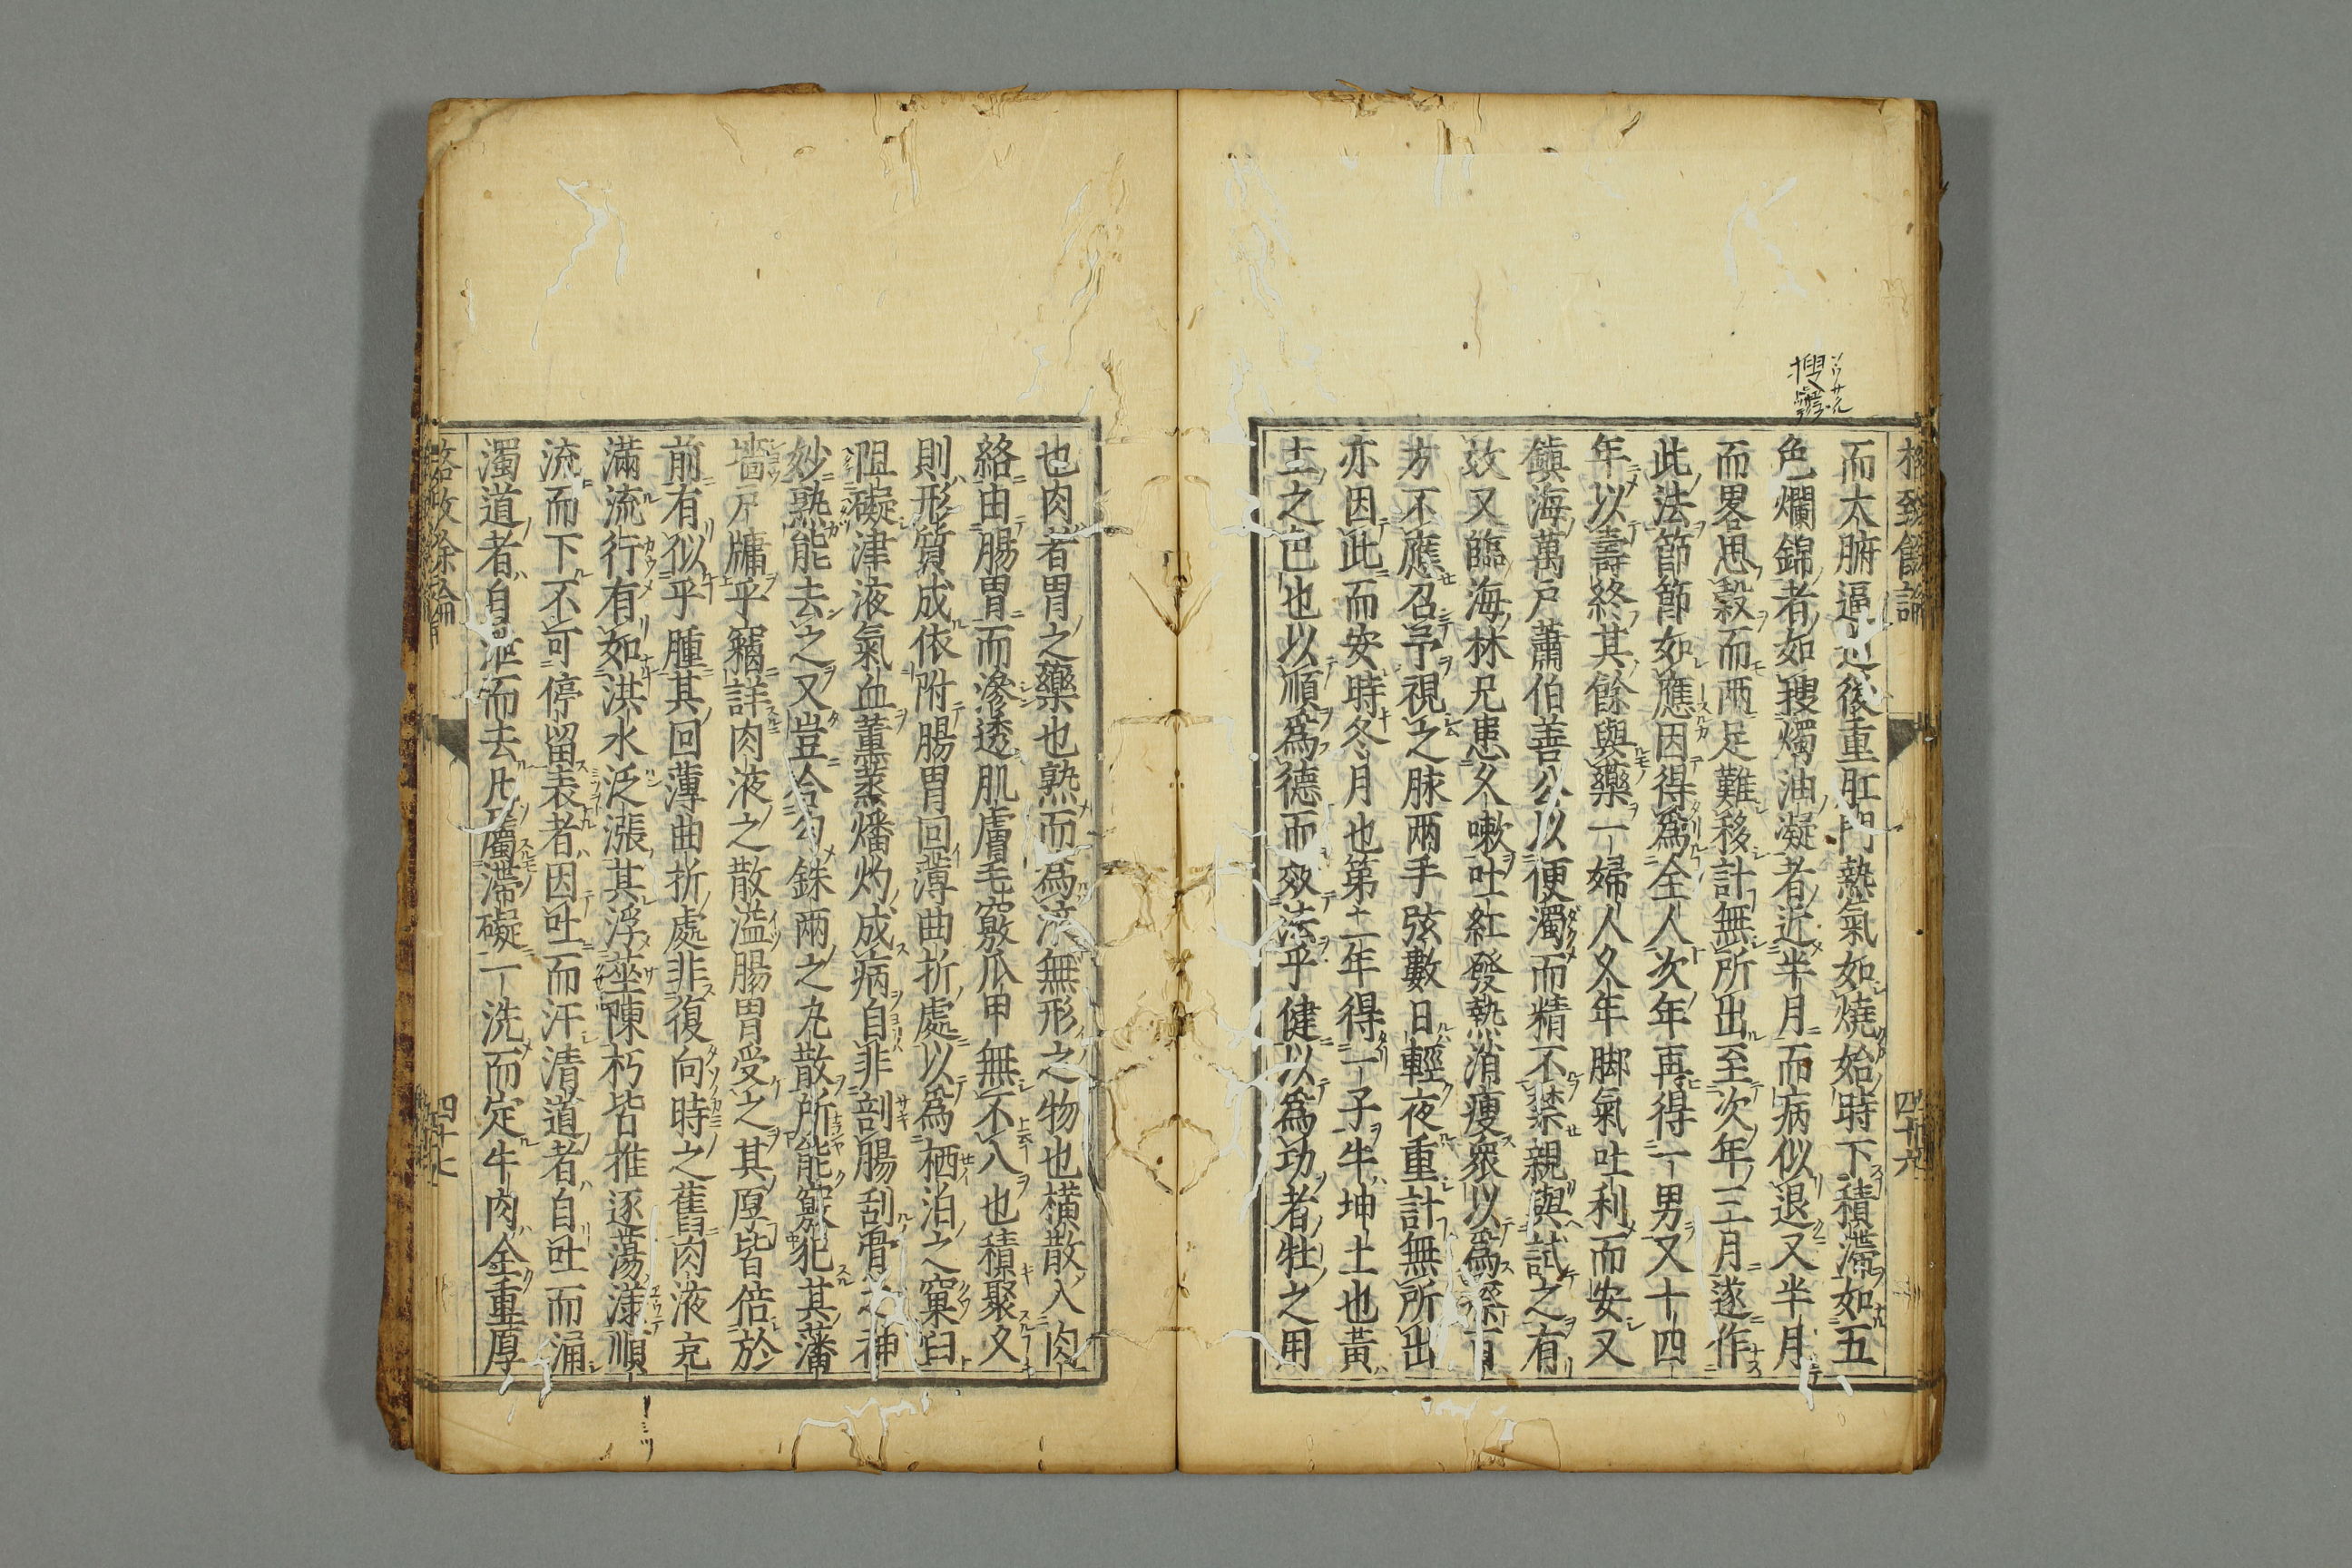 格致餘論
四十六
而大腑逼迫後重肛門熱氣如燒始時下積滯如五
色爛錦者如搜燭油凝者近半月而病似退又半月
而畧思穀而两足難移計無所出至次年三月遂作
此法節節如應因得爲全人次年再得一男又十四
年以壽終其餘與藥一婦人久年脚氣吐利而安又
鎮海萬戸蕭伯善公以便濁而精不禁親與試之有
效又臨海林兄患久嗽吐紅發熱消瘦衆以爲瘵百
方不應召予視之脉两手弦數日輕夜重計無所出
亦因此而安時冬月也第二年得一子牛坤土也黃
土之色也以順爲德而效法乎健以爲功者牡之用
也肉者胃之藥也熟而爲液無形之物也横散入肉
絡由腸胃而滲透肌膚毛竅爪甲無不入也積聚久
則形質成依附腸胃回薄曲折處以爲栖泊之窠臼
阻礙津液氣血薰蒸燔灼成病自非剖腸刮骨之神
妙孰能去之又豈合勺銖兩之丸散所能竅犯其藩
墻戸牖乎竊詳肉液之散溢腸胃受之其厚皆倍於
前有似乎腫其回薄曲折處非復向時之舊肉液充
滿流行有如洪水泛漲其浮莝陳朽皆推逐蕩漾順
流而下不可停留表者因吐而汗清道者自吐而涌
濁道者自泄而去凡屬滯礙一洗而定牛肉全重厚
格致餘論
四十七